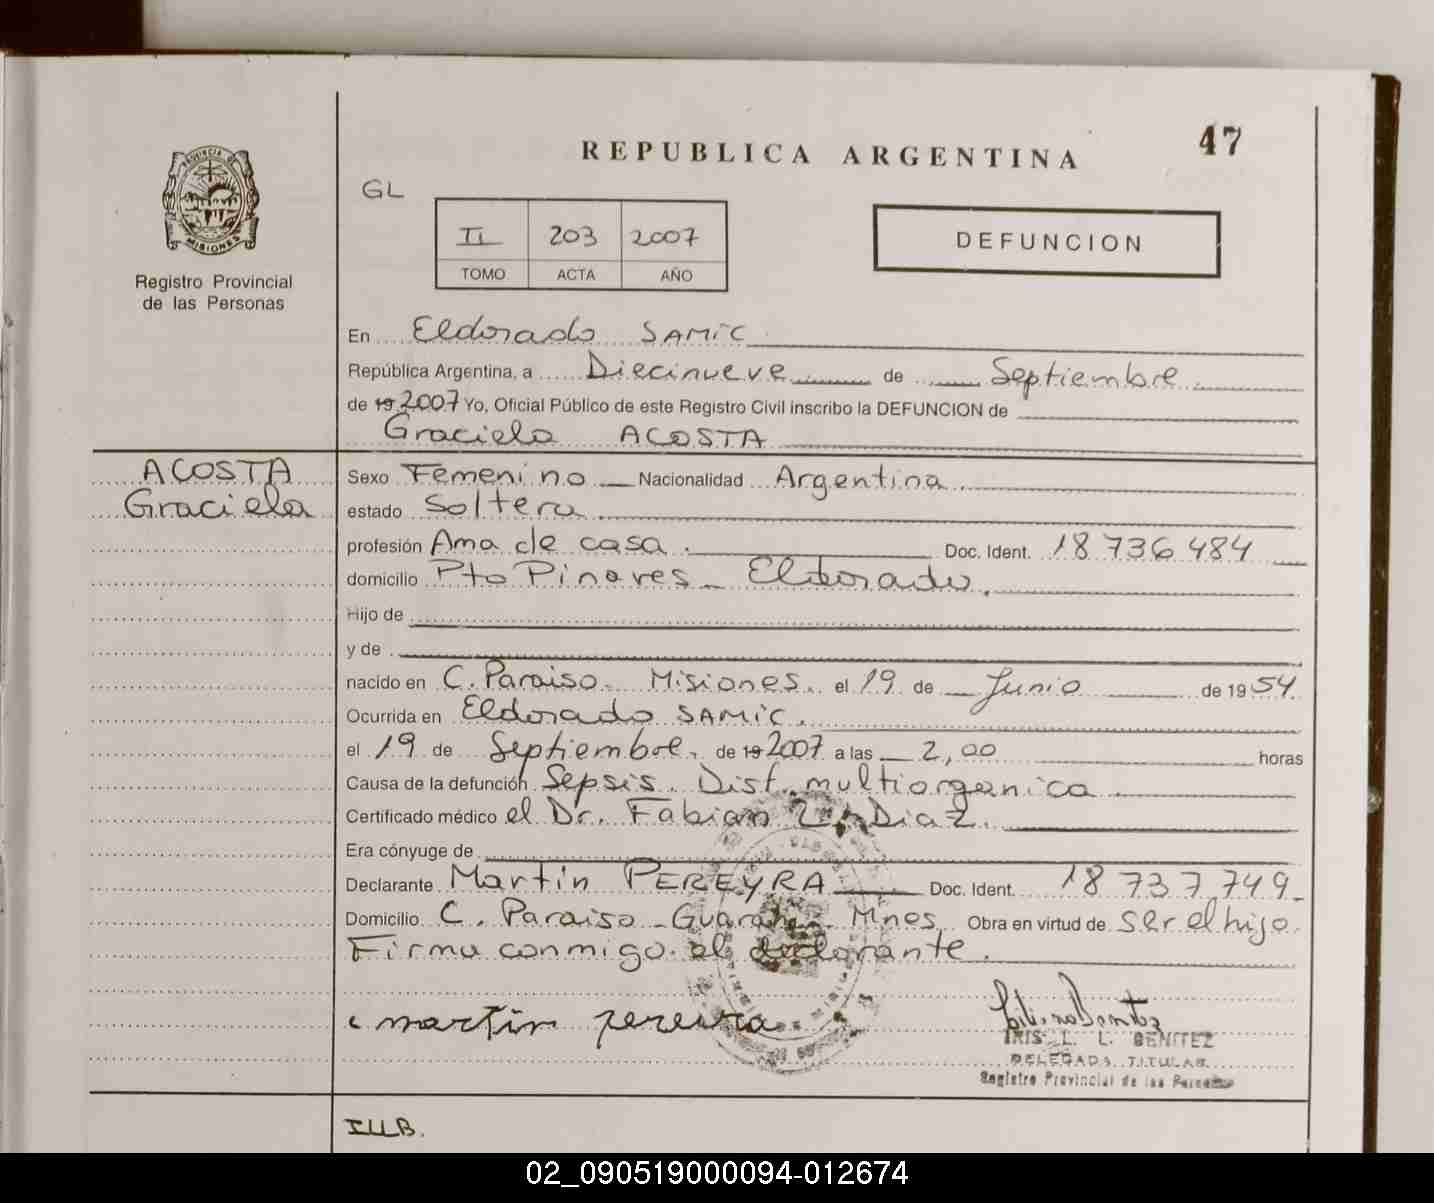 47
REPUBLICA ARGENTINA
GL
II 203 2007
TOMO ACTA AÑO
DEFUNCION
PROVINCIA DE
MISIONES
Registro Provincial
de las Personas
En Eldorado SAMIC
República Argentina, a Diecinueve de Septiembre
de 19 2007 Yo, Oficial Público de este Registro Civil inscribo la DEFUNCION de
Graciela ACOSTA
ACOSTA
Graciela
Sexo Femenino Nacionalidad Argentina
estado Soltera
profesión Ama de casa. Doc. Ident. 18 736 484
domicilio Pto Pinares - Eldorado.
Hijo de
y de
nacido en C. Paraiso. Misiones. el 19 de Junio de 19 54
Ocurrida en Eldorado SAMIC.
el 19 de Septiembre. de 19 2007 a las 2,00 horas
Causa de la defunción Sepsis. Disf. multiorganica
Certificado médico el Dr. Fabian Diaz.
Era cónyuge de
Declarante Martín PEREYRA Doc. Ident. 18 737 749-
Domicilio C. Paraiso - Guarani - Mnes. Obra en virtud de ser el hijo.
Firma conmigo el declarante.
martin pereira
IRIS L. L. BENITEZ
DELEGADA TITULAR
Registro Provincial de las Personas
ILLB.
02_090519000094-012674